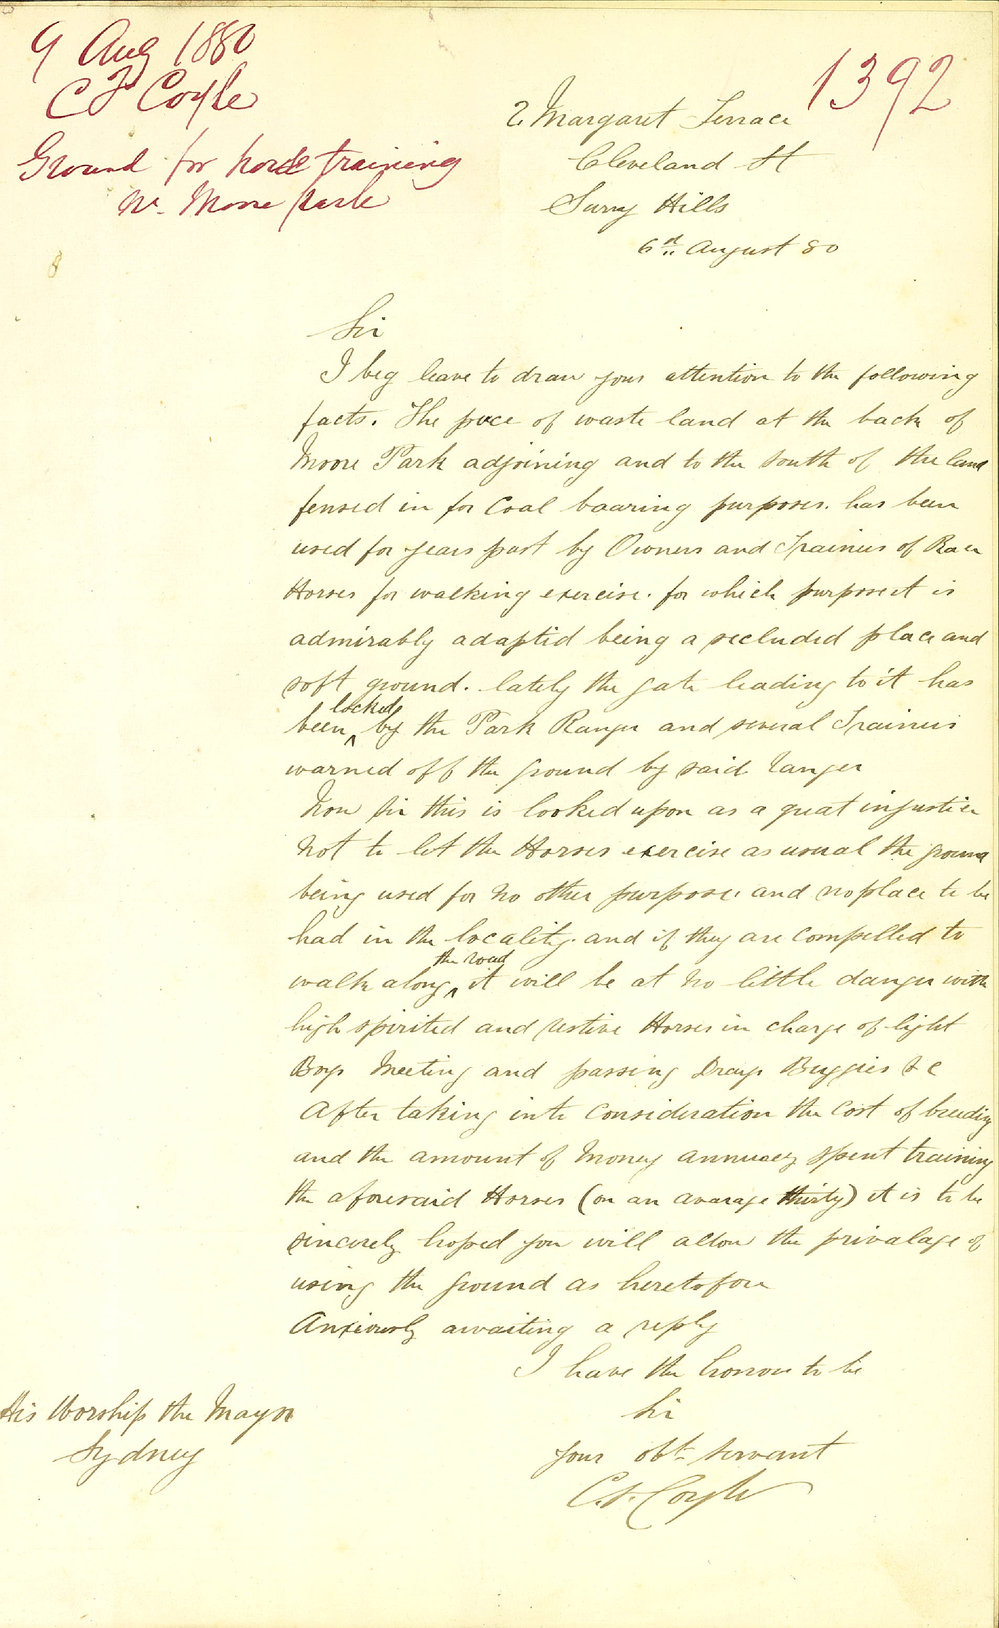 9 Aug 1880
C F Coyle
Ground for horse training
nr. Moore Park
1392
2 Margaret Terrace
Cleveland St
Surry Hills
6th August 80
Sir
I beg leave to draw your attention to the following
facts. The piece of waste land at the back of
Moore Park adjoining and to the South of the land
fensed in for Coal boaring purposes. has been
used for years past by Owners and Trainers of Race
Horses for walking exercise. for which purpose it is
admirably adapted being a secluded place and
soft ground. lately the gate leading to it has
been locked by the Park Ranger and several Trainers
warned off the ground by said ranger
Now Sir this is looked upon as a great injustice
not to let the Horses exercise as usual the ground
being used for no other purpose. and no place to be
had in the locality. and if they are compelled to
walk along the road it will be at no little danger with
high spirited and restive Horses in charge of light
Boys Meeting and passing Drays Buggies & c
After taking into Consideration the Cost of breeding
and the amount of Money annualy spent training
the aforesaid Horses (on an avarage thirty) it is to be
sincerely hoped you will allow the privalage of
using the ground as heretofore
Anxiously awaiting a reply
I have the honour to be
Sir
your obt. servant
C. F. Coyle
His Worship the Mayor
Sydney